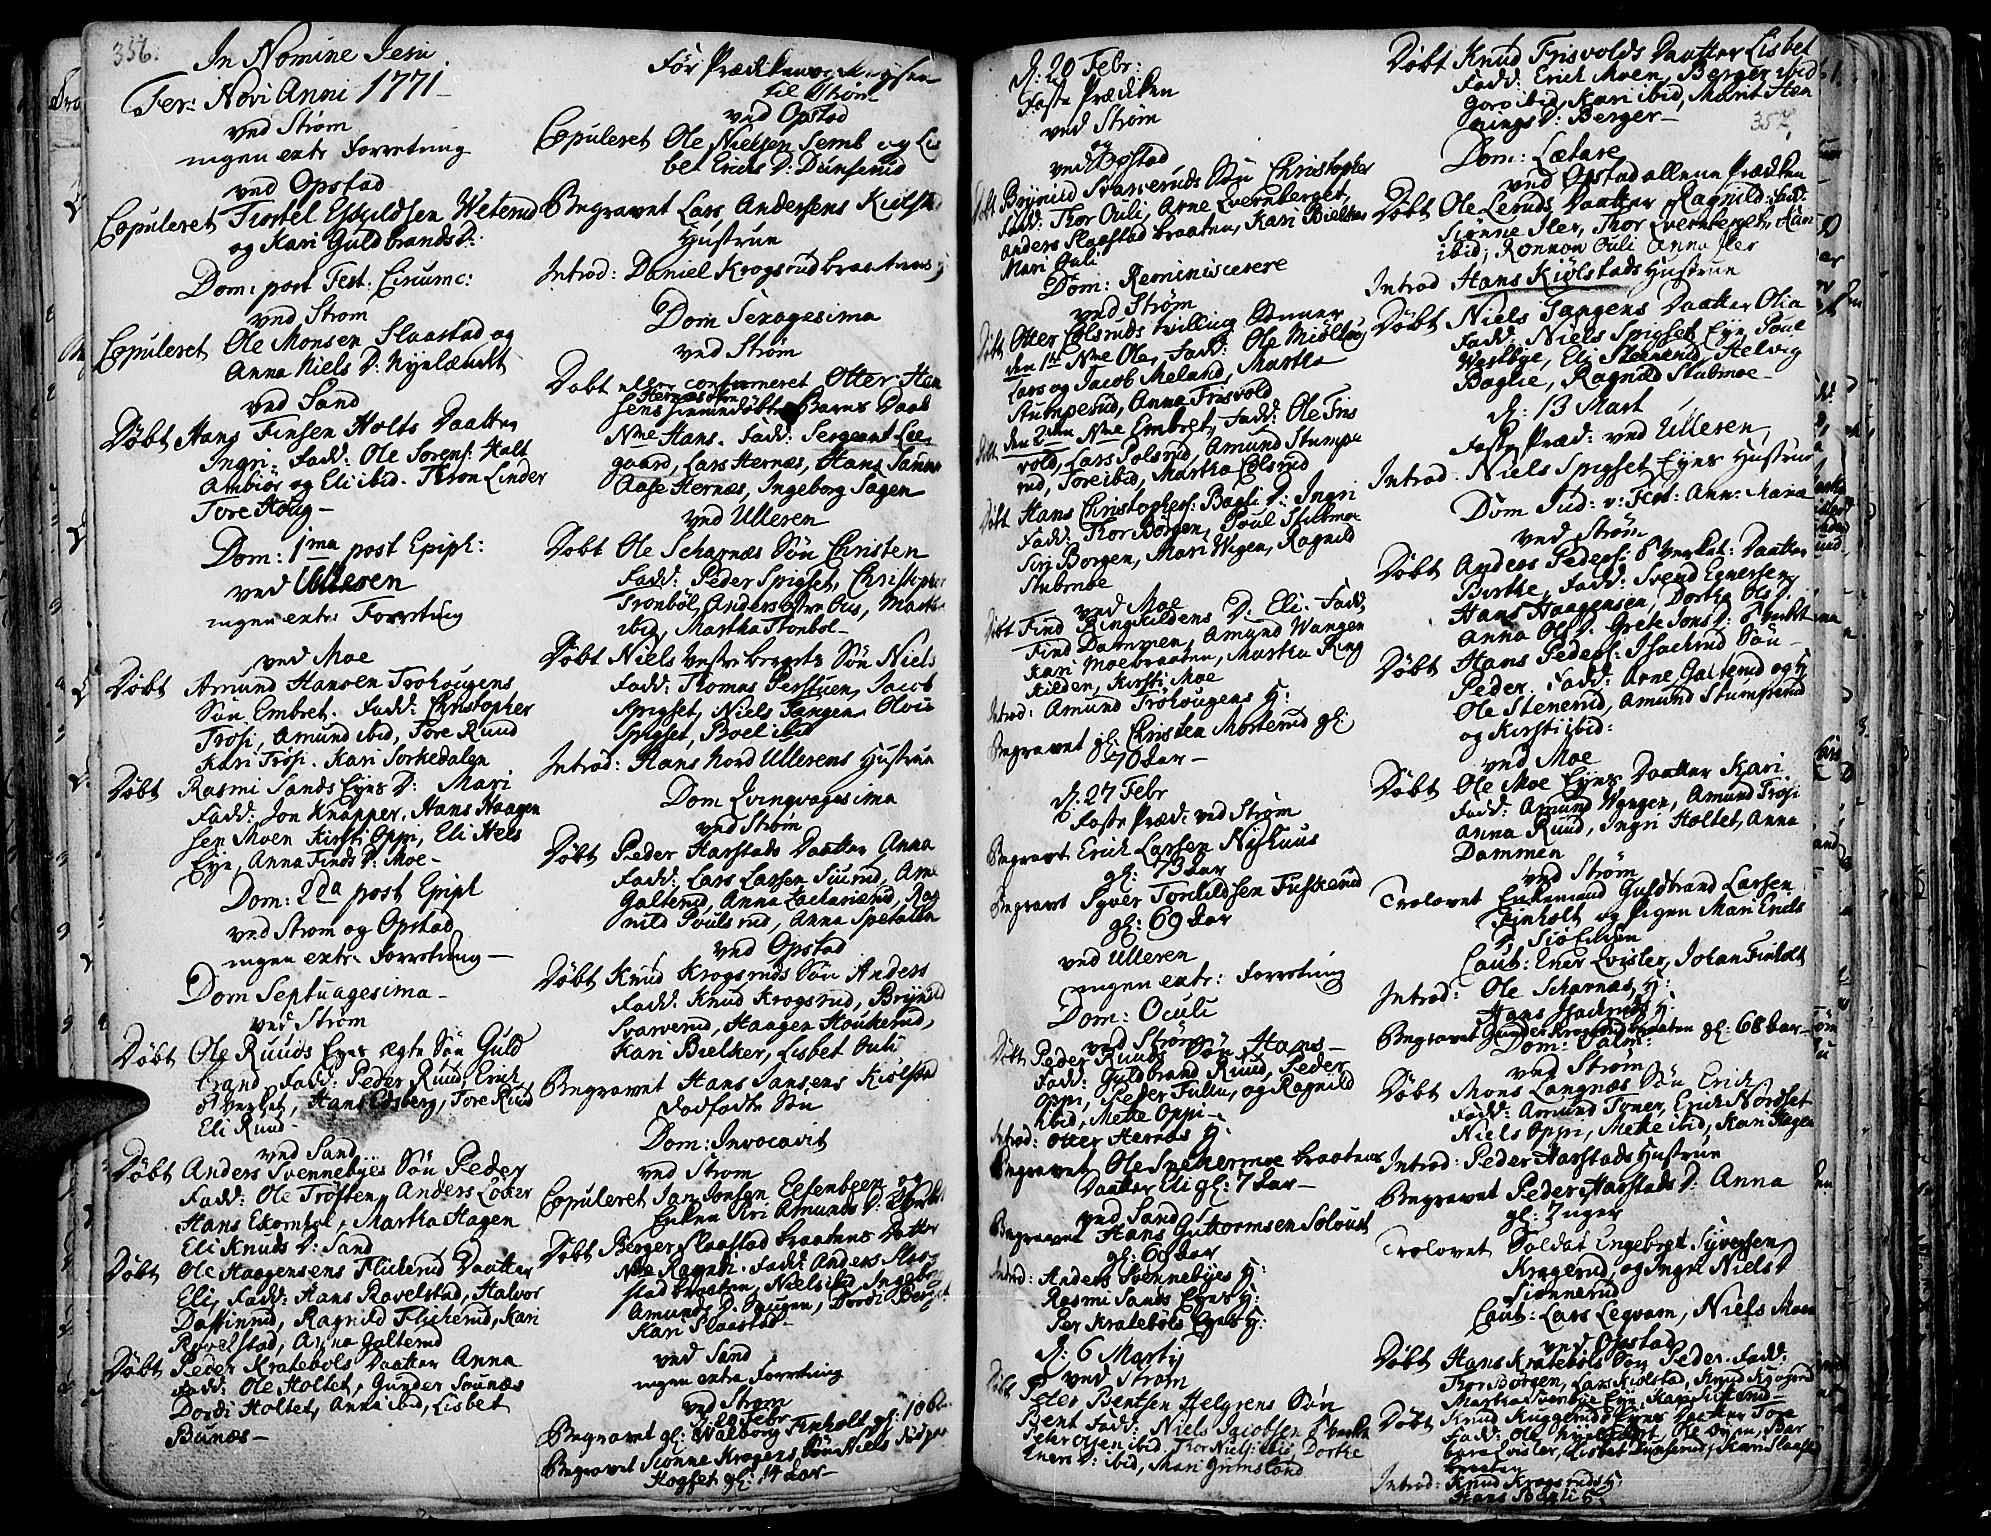 356.
In Nomine Jesu
Fer: Novi Anni 1771
ved Strøm
ingen extr. Forretning
ved Opstad
Copuleret Tostel Eskildsen Weterud
og Kari Guldbrands D:
Dom: post Fest. Circumc:
ved Strøm
Copuleret Ole Monsen Slaastad og
Anna Niels D:
ved Sand
Døbt Hans Finsen Holts Daatter
Ingri. Fadd: Ole Sørens: Holt
Anbiør og Eli ibid. Thron Linder
Tore Houg
Dom: 1ma post Epiph:
ved Ulleren
ingen extr. Forretning
ved Moe
Døbt Amund Hansen Trohougens
Søn Embret. Fadd. Christopher
Trøsi, Amund ibid, Tore Ruud
Kari Trøsi. Kari Sorkedalen
Døbt Rasmi Sands Eyes D: Mari
Fadd: Jon Knapper, Hans Haagen
sen Moen Kirsti Oppi, Eli Hels
Eye, Anna Finds D: Moe
Dom: 2da post Epiph
ved Strøm og Opstad
ingen extr. Forretning
Dom Septuagesima
ved Strøm
Døbt Ole Ruuds Eyes ægte Søn Guld
brand. Fadd: Peder Ruud, Erich
Hans Edsberg, Tore Ruud
Eli Ruud
ved Sand
Døbt Anders Svennebyes Søn Peder
Fadd: Ole Trøften, Anders Løcker
Hans Ekornhol, Martha Hagen
Eli Knuds D: Sand
Døbt Ole Haagensens Flickerud Daatter
Eli, Fadd: Hans Ravelstad, Halvor
Daffinrud, Ragnild Flickerud, Kari
Ravelstad, Anna Galterud
Døbt Peder Kratebøls Daatter Anna
Fadd: Ole Holtet, Gunder Sounæs
Dordi Holtet, Anna ibid, Lisbet
Bunæs
Før Prædikken
til Strøm
ved Opstad
Copuleret Ole Nielsen Semb og Lis
bet Erichs D: Dunserud
Begravet Lars Andersens Kiølstad
Hustrue
Introd: Daniel Krogsrud braatens
Dom Sexagesima
ved Strøm
Døbt eller confirmeret Otter Han
sens Hernæs hiemmedøbte Barns Daab
Nne Hans. Fadd: Sergeant Lee
gaard, Lars Hernæs, Hans
Aase Hernæs, Ingeborg Sagen
ved Ulleren
Døbt Ole Scharnæs Søn Christen
Fadd: Peder Spigset, Christopher
Tronbøl, Anders Østre Aus, Martha
ibid, Martha Tronbøl
Døbt Niels Vestre bergets Søn Niels
Fadd: Thomas Perstuen, Jacob
Spigset, Niels Tangen Olvia
Spigset, Boel ibid
Introd: Hans Nord Ullerens Hustrue
Dom Qvinqvagesima
ved Strøm
Døbt Peder Harstads Daatter Anna
Fadd: Lars Larsen Siurud, Arne
Galterud, Anna Zacharierud, Rag
nild Poulsrud, Anna Spetallen
ved Opstad
Døbt Knud Krogsruds Søn Anders
Fadd: Knud Krogsrud, Brynild
Svarverud, Haagen Houkerud,
Kari Bielker, Lisbet Ouli
Begravet Hans Jansens Kiølstad
dødfødte Søn
Dom: Invocavit
ved Strøm
Copuleret Jan Jonsen Eesenbeen og
Enken Siri Amunds D:
Døbt Berger Slaastad braatens Datter
Nne Ragndi. Fadd: Anders Slaa
stad braaten, Niels ibid, Ingebor
Amunds D. Haugen, Dordi Berget
Kari Slaastad
ved Sand
ingen extra Forretning
ved Strøm
d: 20 Febr
Begravet gl: Walborg Finholt gl: 106 Aar
Begravet Siønne Krogens Søn Niels
Hogset gl: 14 Aar
d: 20 Febr:
Faste Prædiken
ved Strøm
og
ved Opstad
Døbt Brynild Svarveruds Søn Christopher
Fadd: Thor Ouli, Arne Qvernberget,
Anders Slaastad braaten, Kari Bielker
Mari Ouli
Dom: Reminiscere
ved Strøm
Døbt Otter Colsruds tvilling Sønner
den 1te Nne Ole, Fadd: Ole
Lars og Jacob Meland, Martha
Stumperud, Anna Frisvold
Døbt den 2den Nne Embret, Fadd: Ole Fris
vold, Lars Polsrud, Amund Stumpe
rud, Tore ibid, Martha Colsrud
Døbt Hans Christophers: Bagli D: Ingri
Fadd: Thor Borgen, Poul Stubmoe
Siri Borgen, Mari Wigen, Ragnild
Stubmoe
ved Moe
Døbt Find Ringkildens D. Eli. Fadd:
Find Dammen, Amund Wangen
Kari Moebraaten, Martha Ring
kilden, Kirsti Moe
Introd: Amund Trøhougens H:
Begravet gl: Christen Morterud gl:
70 Aar
d: 27 Febr
Faste Præd: ved Strøm
Begravt Erich Larsen Nyshuus
gl: 73 Aar
Begravt Syver Torkildsen Fuskerud
gl: 69 Aar
ved Ulleren
ingen extr: Forretning
Dom: Oculi
ved Strøm
Døbt Peder Ruuds Søn Hans
Fadd: Guldbrand Ruud, Peder
Oppi, Peder Fulu, og Ragnild
ibid, Mette Oppi
Introd: Otter Hernæs H:
Begravet Ole Snekermoe braatens
Daatter Eli gl: 7 Aar
ved Sand
Begravet Hans Guttormsen Soloust
gl: 60 Aar
Introd: Anders Svennebyes H:
Rasmi Sands Eyes H:
Per Kratebøls Eyes H:
d: 6 Martij
ved Strøm
Døbt Peter Bentsen Helgrens Søn
Bent Fadd: Niels Jacobsen
Peter Olsen ibid, Thor Niels: ibid, Dorthe
Eners D: ibid, Mari Grimsland
Døbt Knud Frisvolds Daatter Lisbet
Fadd: Erich Moen, Berger ibid
Goro ibid, Kari ibid, Marit Hen
nings D: Berger
357
Dom: Lætare
ved Opstad allene Prædiken
Døbt Ole Leruds Daatter Ragnild. Fadd:
Siønne Iler, Thor Qvernberget,
ibid, Ronnou Ouli Anna Iler
Introd Hans Kiølstads Hustrue
Døbt Niels Tangens Daatter Olia
Fadd: Niels Spigset Eye, Poul
Westbye, Eli Stenerud, Helvig
Baglie, Ragnild Stubmoe
d: 13 Mart
Faste Præd: ved Ulleren,
Introd. Niels Spigset Eyes Hustrue
Dom Jud: v: Fest: Ann: Mariæ
ved Strøm
Døbt Anders Peders: Verket: Daatter
Birthe, Fadd: Svend Enersen,
Hans Haagensen, Dorthe Ols D:
Anna Ols D: Grete Jons D:
Døbt Hans Peders: Isachrud Søn
Peder. Fadd: Arne Galterud og
Ole Stenerud, Amund Stumperud
og Kirsti ibid:
ved Moe
Døbt Ole Moe Eyes Daatter Kari
Fadd: Amund Wangen, Amund Trøsi
Anna Ruud, Ingri Holtet, Anna
Dammen
ved Strøm
Trolovet Enkemand Guldbrand Larsen
Finholt og Pigen Mari Erichs
D.
Caut: Ener Qvisler, Johan Finholt
Introd: Ole Scharnæs H:
Hans Isachruds H:
Begravet Gunder Krogsrud braaten gl: 68 Aar
Dom: Palm:
ved Strøm
Døbt Mons Langnæs Søn Erich
Fadd: Amund Toner, Erich Nordset
Niels Oppi, Mette ibid, Kari Hagen
Introd: Peder Harstads Hustrue
Begravet Peder Harstads D. Anna
gl: 7 uger
Trolovet Soldat Engebret Syversen
Kragerud, og Ingri Niels D
Siønnerud
Caut: Lars Legvam, Niels Moen
ved Opstad
Døbt Hans Kratebøls Søn Peder. Fadd:
Thor Borgen, Lars Kiølstad, Knud Krogsrud
Martha
Døbt Knud Ruggeruds Eyes Daatter Tore
Fadd: Ole
Lisbet Dunserud, Kari Slaastad
braaten
Introd: Knud Krogsruds H:
Hans Bagli H: